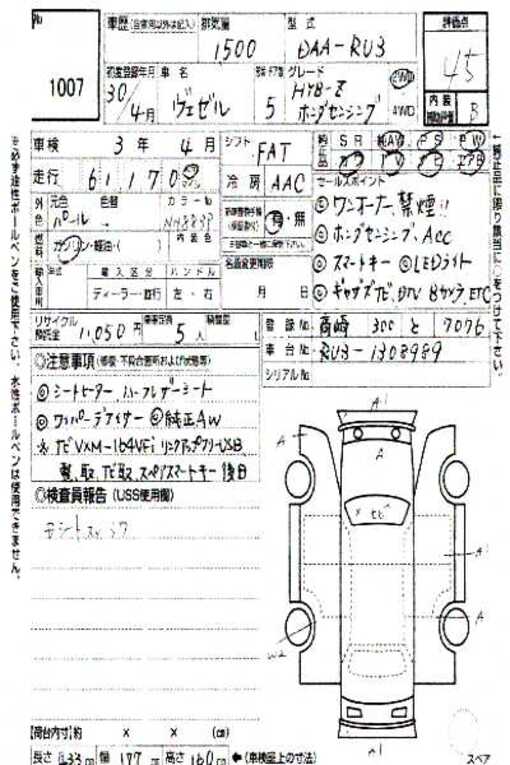 No 1007
車歴 (自家用以外は記入) 排気量 型式 評価点
1500 DAA-RU3 4.5
初度登録年月 車名 ドア数 グレード 2WD 内装
30/4月 ヴェゼル 5 HYB-Z ホンダセンシング 4WD B
車検 3年 4月 シフト FAT SR AW PS PW
走行 61,170 冷房 AAC カワ TV ナビ エアB
外色 元色 色替 カラーNo セールスポイント
パール NH883P 有・無
内装色
燃料 ガソリン・軽油・( )
◎ワンオーナー、禁煙!!
◎ホンダセンシング、ACC
◎スマートキー ◎LEDライト
◎ギャザズナビ、DTV Bカメラ、ETC
輸入車用 年式 輸入区分 ハンドル 名義変更期限
ディーラー・並行 左・右 月 日
リサイクル預託金 11,050円 乗車定員 5人 積載量
登録No 高崎 300 と 7076
車台No RU3-1308989
シリアルNo
◎注意事項(修復・不具合箇所および状態等)
◎シートヒーター、ハーフレザーシート
◎ワイパーデアイサー ◎純正AW
※ナビVXM-164VFi リンクアップフリーUSB
整、取、ナビ取、スペアスマートキー 後日
◎検査員報告(USS使用欄)
A1
A
A
A1
A
W2
A1
スペア
【荷台内寸】約 × × (cm)
長さ 433 cm 幅 177 cm 高さ 160 cm ←(車検証上の寸法)
※必ず油性ボールペンをご使用下さい。水性ボールペンは使用できません。
←純正品に限り該当に○をつけて下さい。